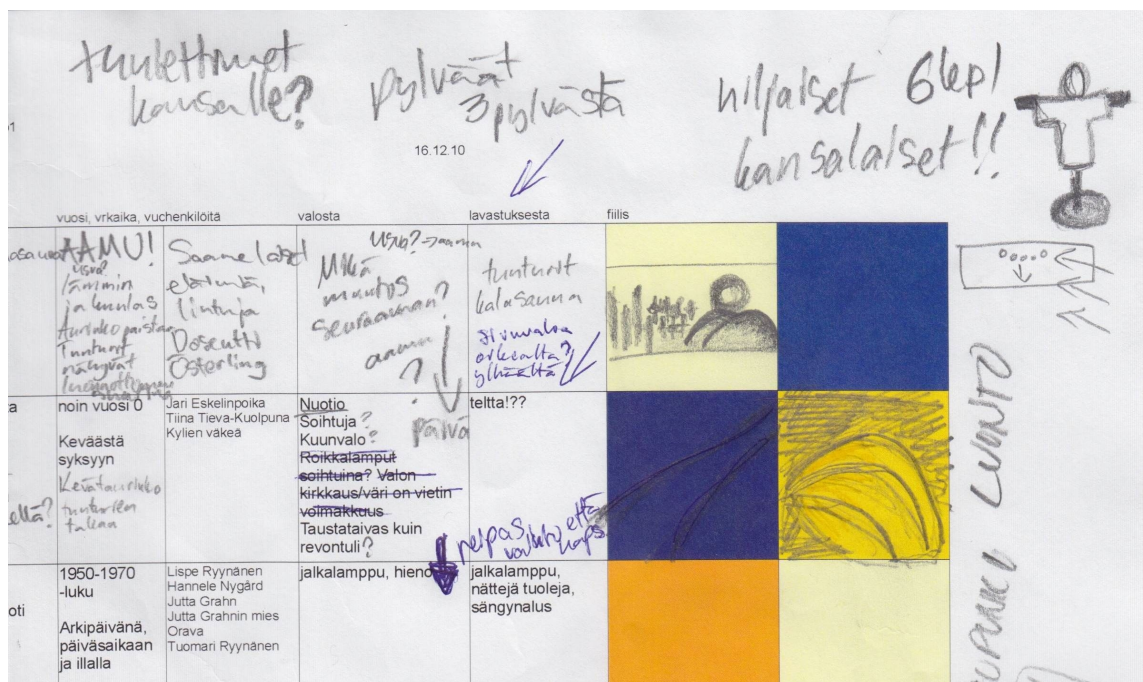 tuulettimet
kansalle?
pylväät
3 pylvästä
hiljaiset 6 kpl
kansalaiset!!
16.12.10
vuosi, vrkaika, vuchenkilöitä
valosta
lavastuksesta
fiilis
AAMU!
usva?
lämmin
ja kuulas
Aurinko paistaa
Tunturit
näkyvät
Saamelaiset
eläimiä,
lintuja
Dosentti
Österling
usva? → aamu
Mikä
muutos
seuraavaan?
aamu
?
päivä
tunturit
kalasauna
sivuvaloa
oikealta?
ylhäältä
noin vuosi 0
Keväästä
syksyyn
Kevätaurinko
tunturien
takaa
Jari Eskelinpoika
Tiina Tieva-Kuolpuna
Kylien väkeä
Nuotio
Soihtuja ?
Kuunvalo ?
Roikkalamput
soihtuina? Valon
kirkkaus/väri on vietin
voimakkuus
Taustataivas kuin
revontuli ?
teltta!??
reipas
että
1950-1970
-luku
Arkipäivänä,
päiväsaikaan
ja illalla
Lispe Ryynänen
Hannele Nygård
Jutta Grahn
Jutta Grahnin mies
Orava
Tuomari Ryynänen
jalkalamppu, hieno
jalkalamppu,
nättejä tuoleja,
sängynalus
oti
LUONTO